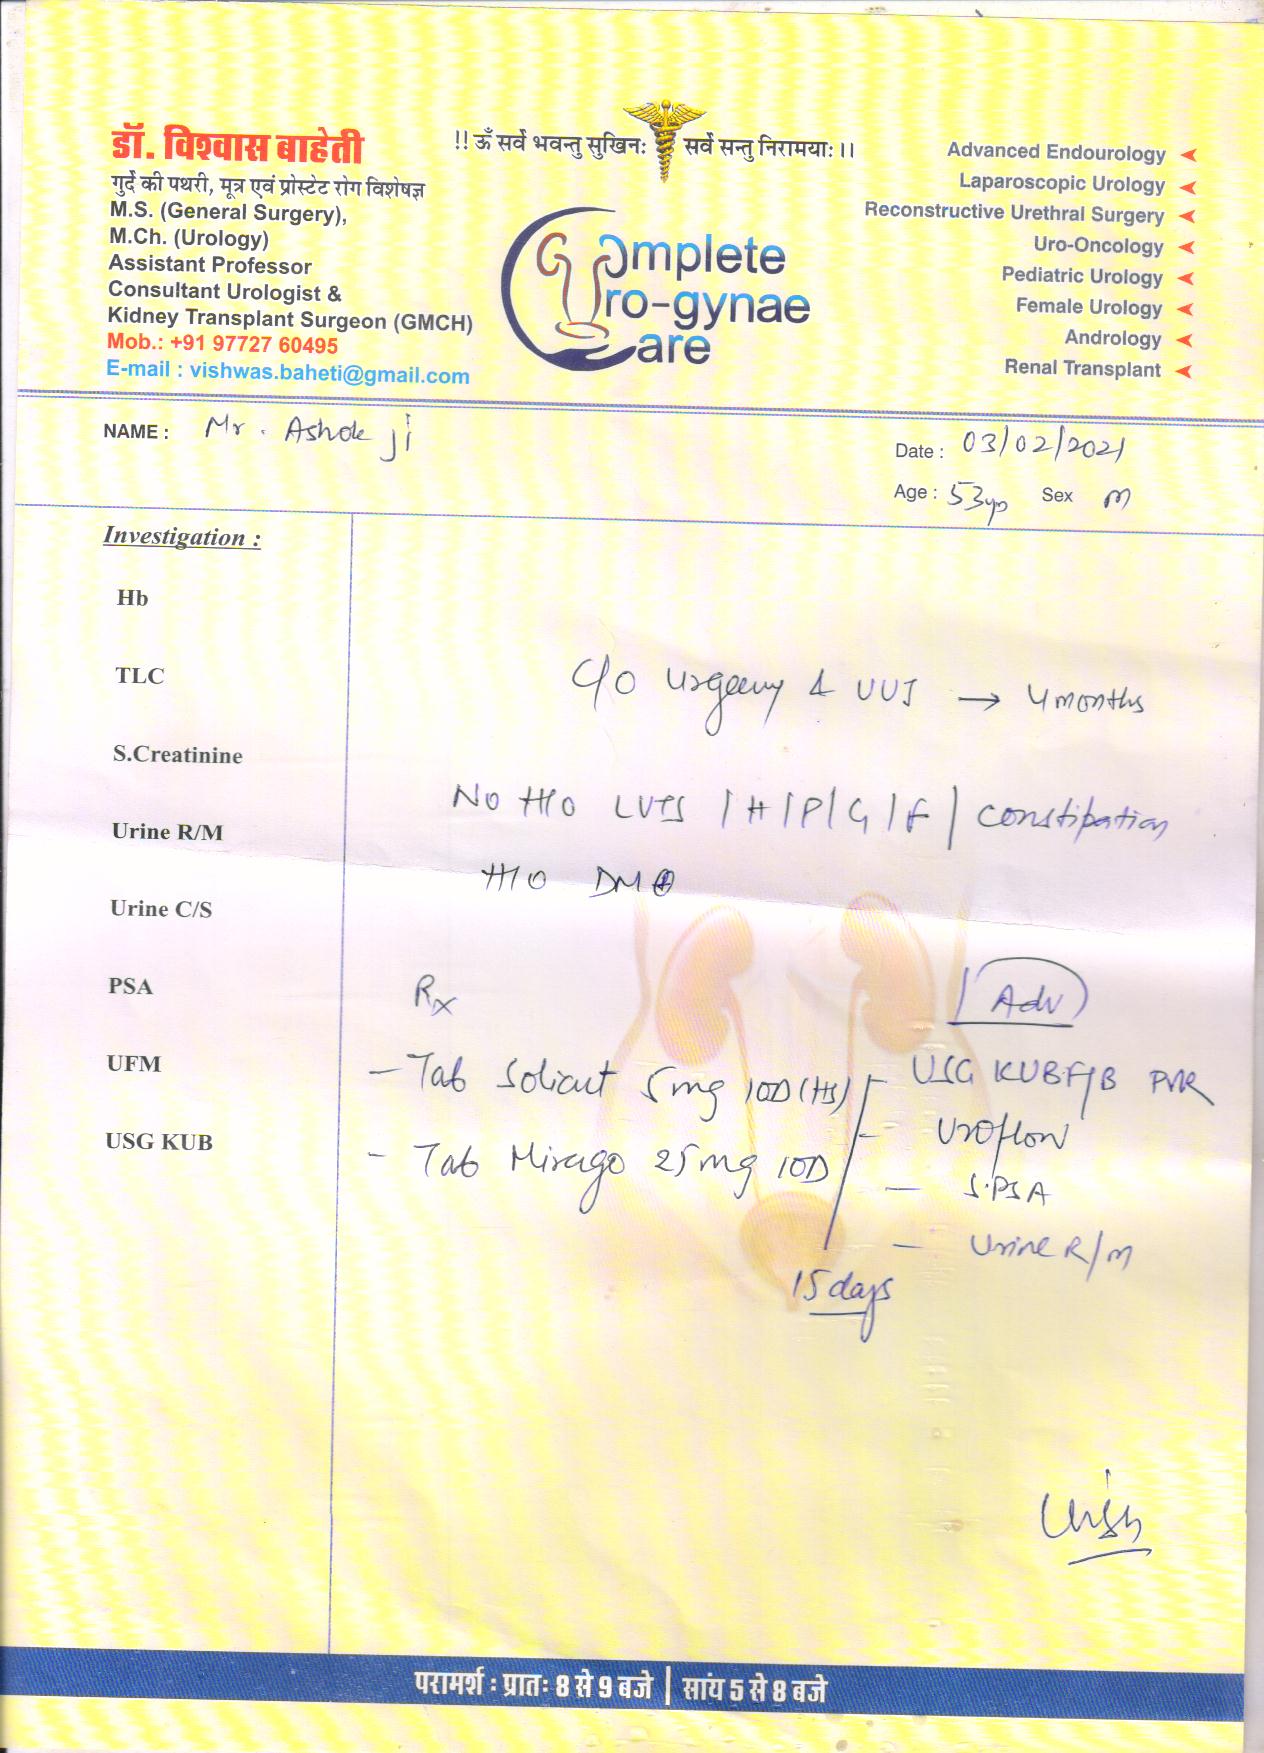 डॉ. विश्वास बाहेती
गुर्दे की पथरी, मूत्र एवं प्रोस्टेट रोग विशेषज्ञ
M.S. (General Surgery),
M.Ch. (Urology)
Assistant Professor
Consultant Urologist &
Kidney Transplant Surgeon (GMCH)
Mob.: +91 97727 60495
E-mail : vishwas.baheti@gmail.com
!! ॐ सर्वे भवन्तु सुखिनः सर्वे सन्तु निरामयाः।।
Complete
Uro-gynae
Care
Advanced Endourology
Laparoscopic Urology
Reconstructive Urethral Surgery
Uro-Oncology
Pediatric Urology
Female Urology
Andrology
Renal Transplant
NAME : Mr. Ashok ji
Date : 03/02/2021
Age : 53yrs Sex M
Investigation :
Hb
TLC
S.Creatinine
Urine R/M
Urine C/S
PSA
UFM
USG KUB
C/O Urgency & UUI → 4 months
No H/O LUTS / H / P / G / F / constipation
H/O DM ⊕
Rx
- Tab Solicut 5mg 1OD (HS)
- Tab Mirago 25mg 1OD
15 days
Adv
- USG KUB F/B PVR
- Uroflow
- S.PSA
- Urine R/M
परामर्श : प्रातः 8 से 9 बजे | सांय 5 से 8 बजे